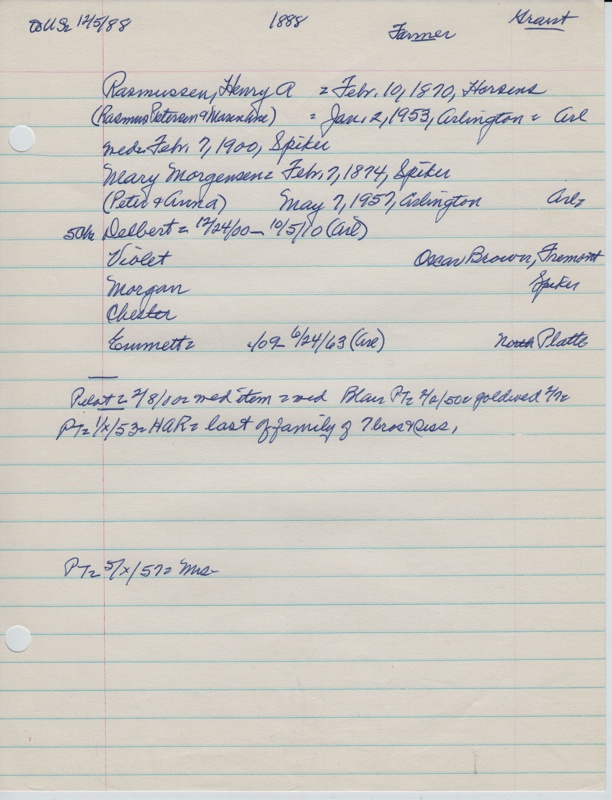 to US 12/5/88 1888 Farmer Grant
Rasmussen, Henry A = Febr. 10, 1870, Horsens
(Rasmus Peterson & Maren Ane) = Jan. 2, 1953, Arlington = Arl
wed= Febr. 7, 1900, Spiker
Mary Morgensen= Feb. 7, 1874, Spiker
(Peter & Anna) May 7, 1957, Arlington Arl=
50th Delbert = 12/24/00 - 10/5/10 (Arl)
Violet Oscar Brown, Fremont
Morgan Spiker
Chester
Emmett= /09 - 6/24/63 (Arl) North Platte
Pilot = 2/8/00= wed item = wed Blair PT= 2/2/50= gold wed 2/7=
PT= 1/x/53= HAR= last of family of 7 bros & siss,
PT= 5/x/57= Mrs-